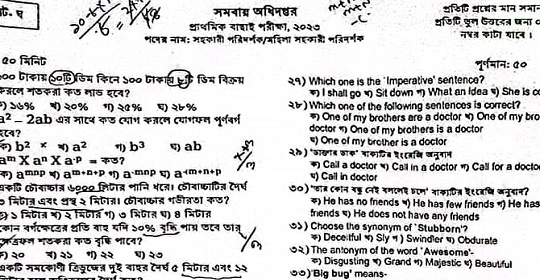 সেট: ঘ
সমবায় অধিদপ্তর
প্রাথমিক বাছাই পরীক্ষা, ২০২৩
পদের নাম: সহকারী পরিদর্শক/মহিলা সহকারী পরিদর্শক
প্রতিটি প্রশ্নের মান সমান
প্রতিটি ভুল উত্তরের জন্য
নম্বর কাটা যাবে।
৫০ মিনিট
পূর্ণমান: ৫০
১০০ টাকায় ১০টি ডিম কিনে ১০০ টাকায় ৮টি ডিম বিক্রয়
করলে শতকরা কত লাভ হবে?
ক) ১৬% খ) ২০% গ) ২৫% ঘ) ২৮%
a² − 2ab এর সাথে কত যোগ করলে যোগফল পূর্ণবর্গ
হবে?
ক) b² খ) a² গ) b³ ঘ) ab
aᵐ X aⁿ X aᵖ = কত?
ক) aᵐⁿᵖ খ) aᵐ⁺ⁿ⁻ᵖ গ) a⁻ᵐⁿᵖ ঘ) a⁺ᵐ⁺ⁿ⁺ᵖ
একটি চৌবাচ্চার ৬০০০ লিটার পানি ধরে। চৌবাচ্চাটির দৈর্ঘ
৩ মিটার এবং প্রস্থ ২ মিটার। চৌবাচ্চার গভীরতা কত?
ক) ১ মিটার খ) ২ মিটার গ) ৩ মিটার ঘ) ৪ মিটার
কোন বর্গক্ষেত্রের প্রতি বাহু যদি ১০% বৃদ্ধি পায় তবে তার
ক্ষেত্রফল শতকরা কত বৃদ্ধি পাবে?
ক) ২০ খ) ২১ গ) ২২ ঘ) ২৩
একটি সমকোণী ত্রিভুজের দুই বাহুর দৈর্ঘ ৫ মিটার এবং ১২
২৭) Which one is the `Imperative' sentence?
ক) I shall go খ) Sit down গ) What an idea ঘ) She is
২৮) Which one of the following sentences is correct?
ক) One of my brothers are a doctor খ) One of my bro
doctor গ) One of my brothers is a doctor
ঘ) One of my brother is a doctor
২৯) 'ডাক্তার ডাক' বাক্যটির ইংরেজি অনুবাদ
ক) Call a doctor খ) Call in a doctor গ) Call for a doctor
ঘ) Call in doctor
৩০) 'তার কোন বন্ধু নেই বললেই চলে' বাক্যটির ইংরেজি অনুবাদ?
ক) He has no friends খ) He has few friends গ) He has
friends ঘ) He does not have any friends
৩১) Choose the synonym of `Stubborn'?
ক) Deceitful খ) Sly গ) Swindler ঘ) Obdurate
৩২) The antonym of the word `Awesome'-
ক) Disgusting খ) Grand গ) Majestic ঘ) Beautiful
৩৩) 'Big bug' means-